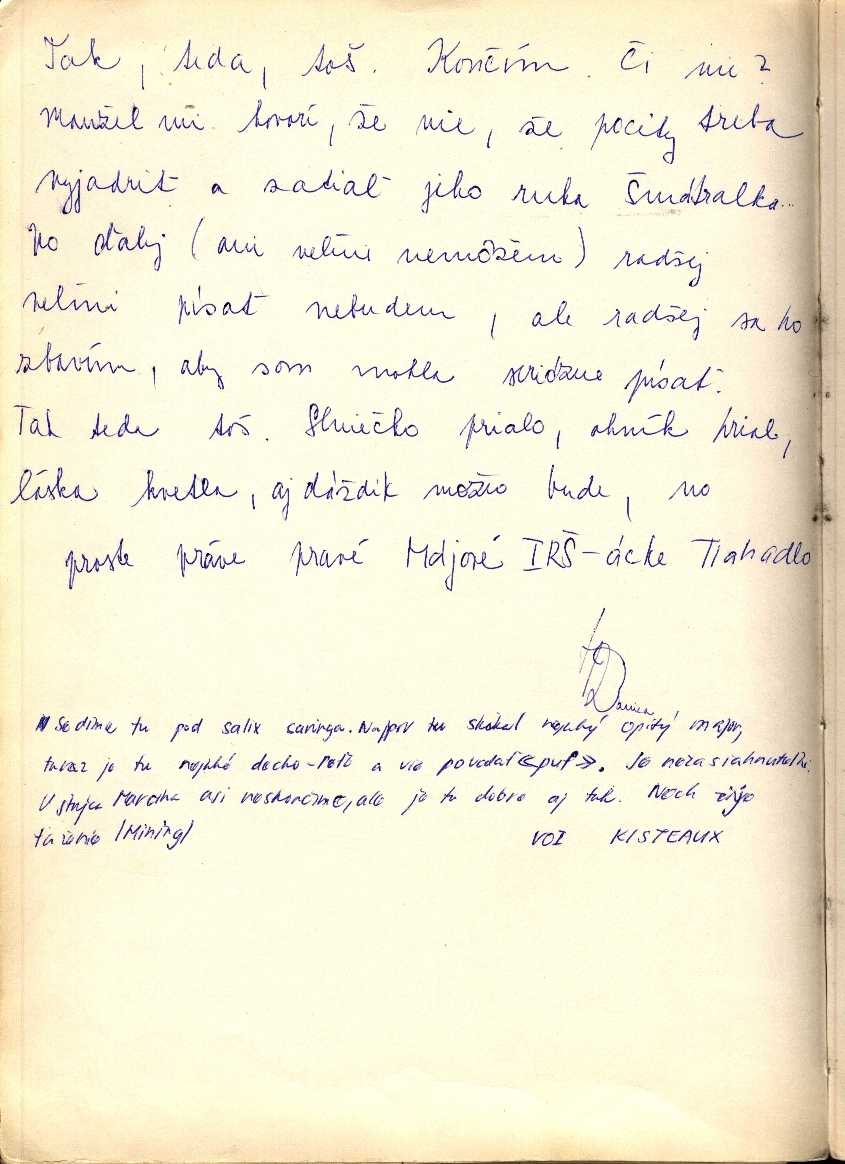 Tak, teda, toš. Končím. Či nie?
Manžel mi hovorí, že nie, že pocity treba
vyjadriť a zatiaľ jeho ruka šmátralka..
No ďalej (ani veľmi nemôžem) radšej
veľmi písať nebudem, ale radšej sa ho
zbavím, aby som mohla seriózne písať.
Tak teda toš. Slniečko prialo, ohník prial,
láska kvetla, aj dáždik možno bude, no
proste práve pravé Májové IRŠ-ácke Tiahadlo
Danica
Sedíme tu pod salix. Najprv tu skákal nejaký opitý major,
teraz je tu nejaké decko a vie povedať «puf». Je nezasiahnuteľné.
V stujca asi neskončíme, ale je tu dobre aj tak. Nech žije
ťaženie /Mining/ VOI KISTEAUX